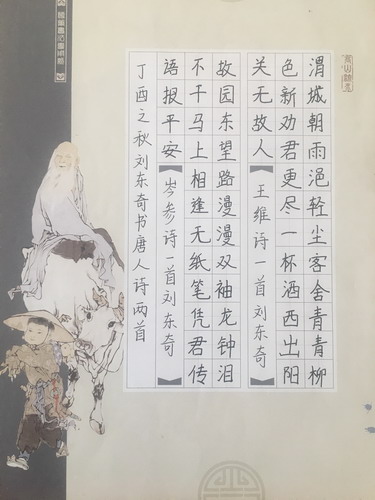 渭城朝雨浥轻尘客舍青青柳
色新劝君更尽一杯酒西出阳
关无故人【王维诗一首刘东奇】
故园东望路漫漫双袖龙钟泪
不干马上相逢无纸笔凭君传
语报平安【岑参诗一首刘东奇】
丁酉之秋刘东奇书唐人诗两首